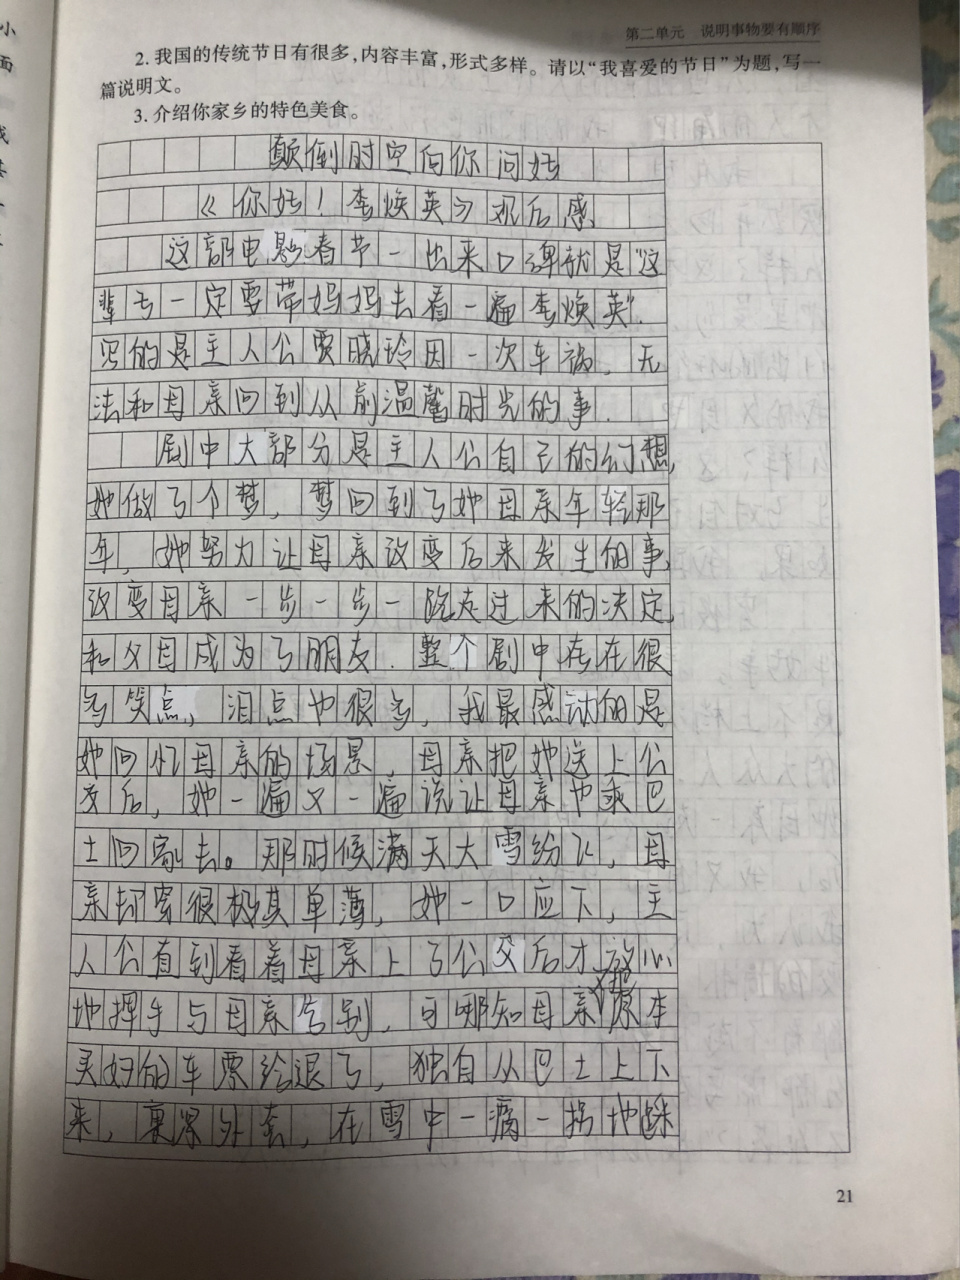 第二单元 说明事物要有顺序
2. 我国的传统节日有很多,内容丰富,形式多样。请以“我喜爱的节日”为题,写一
篇说明文。
3. 介绍你家乡的特色美食。
颠倒时空向你问好
《你好!李焕英》观后感
这部电影春节一出来口碑就是“这
辈子一定要带妈妈去看一遍李焕英”.
写的是主人公贾晓玲因一次车祸,无
法和母亲回到从前温馨时光的事.
剧中大部分是主人公自己的幻想,
她做了个梦,梦回到了她母亲年轻那
年,她努力让母亲改变后来发生的事,
改变母亲一步一步一院走过来的决定,
和父母成为了朋友.整个剧中存在很
多笑点,泪点也很多,我最感动的是
她回忆母亲的场景,母亲把她送上公
交后,她一遍又一遍说让母亲也乘巴
士回家去。那时候满天大雪纷飞,母
亲却穿很极其单薄,她一口应下,主
人公直到看着母亲上了公交后才放心
地挥手与母亲告别,可哪知母亲把原本
买好的车票给退了,独自从巴士上下
来,裹紧外套,在雪中一瘸一拐地踩
21
小
面